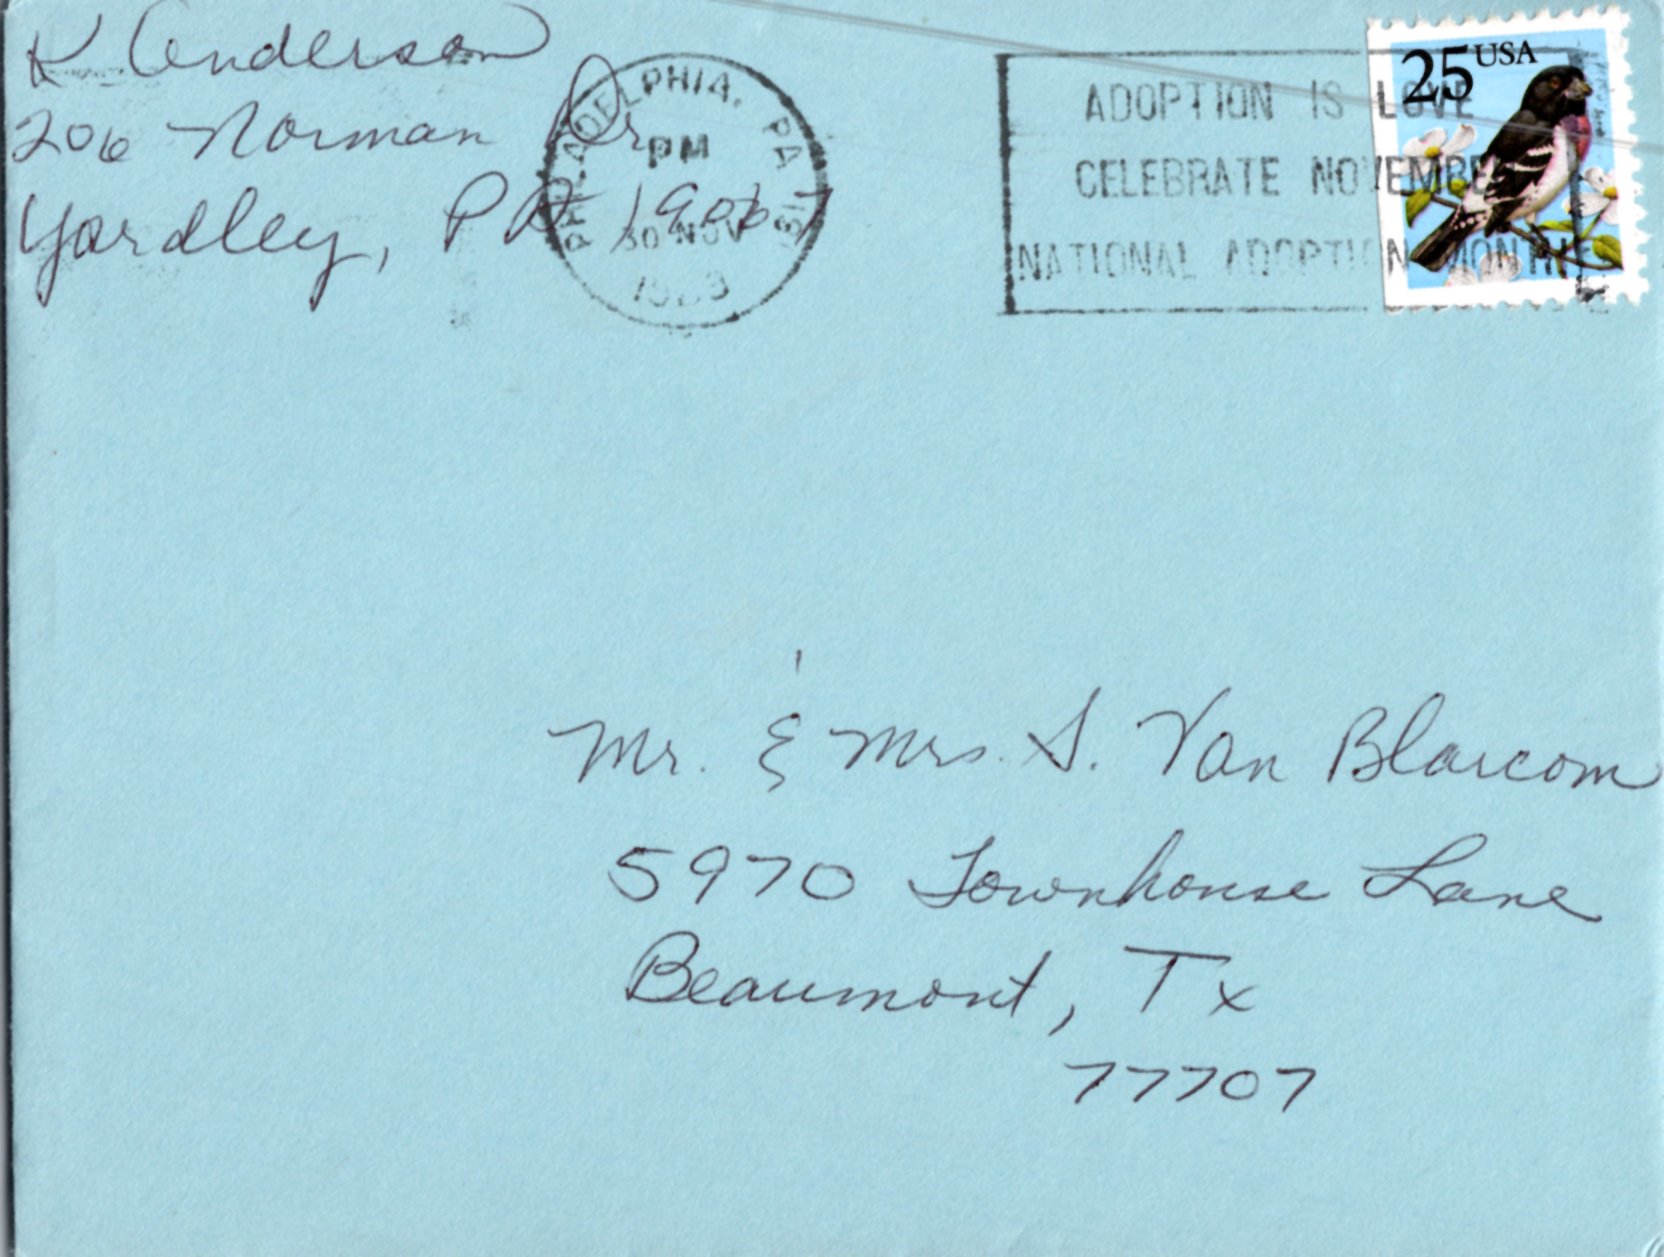 K Anderson
206 Norman Dr
Yardley, PA 19067
PHILADELPHIA, PA
PM
30 NOV
ADOPTION IS LOVE
CELEBRATE NOVEMBER
NATIONAL ADOPTION MONTH
25 USA
Mr. & Mrs. S. Van Blarcom
5970 Townhouse Lane
Beaumont, Tx
77707